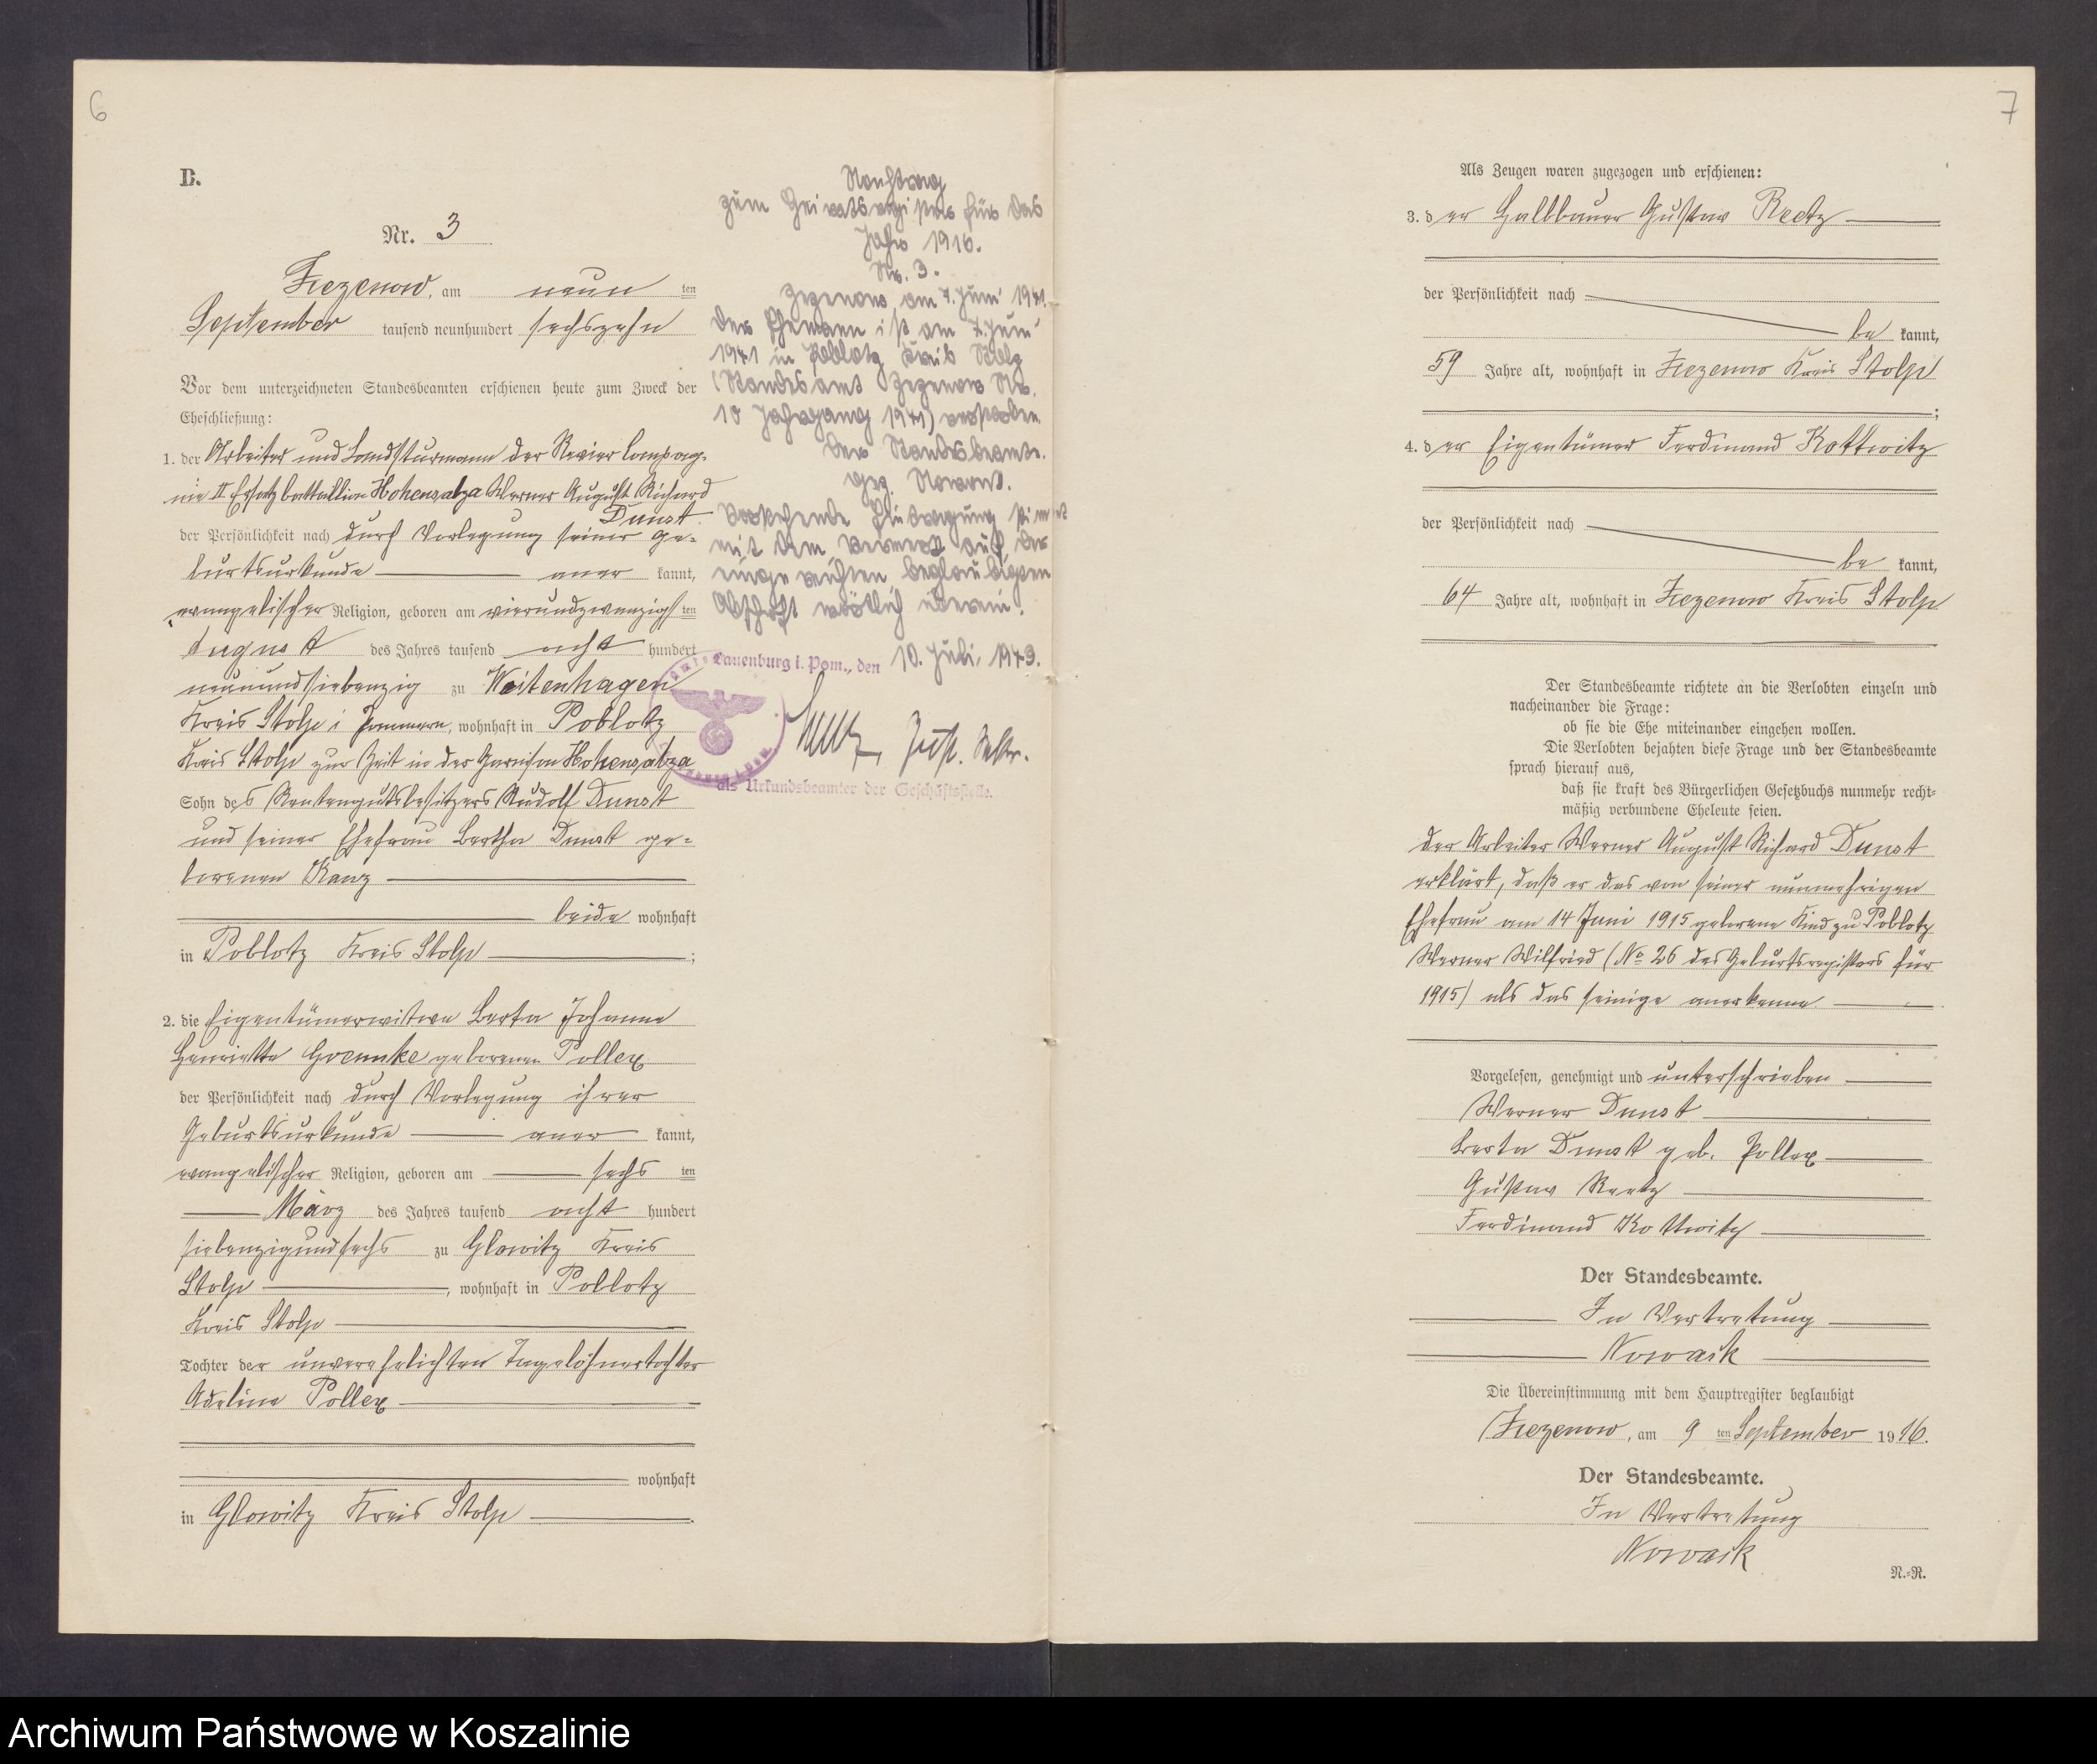 6
B.
Nr. 3
Zezenow, am neun ten
September tausend neunhundert sechszehn
Vor dem unterzeichneten Standesbeamten erschienen heute zum Zweck der
Eheschließung:
1. der Arbeiter und Landsturmann der Revier Compag-
nie II Ersatz battaillion Hohensalza Werner August Richard
Dunst
der Persönlichkeit nach durch Vorlegung seiner Ge-
burtsurkunde aner kannt,
evangelischer Religion, geboren am vierundzwanzigs ten
August des Jahres tausend acht hundert
neunundsiebenzig zu Weitenhagen
Kreis Stolp i Pommern, wohnhaft in Poblotz
Kreis Stolp zur Zeit in der Garnison Hohensalza
Sohn des Rentengutsbesitzers Rudolf Dunst
und seiner Ehefrau Bertha Dunst ge-
borenen Kanz
beide wohnhaft
in Poblotz Kreis Stolp ;
2. die Eigentümerwitwe Berta Johanne
Henriette Groennke geborenen Pollex
der Persönlichkeit nach durch Vorlegung ihrer
Geburtsurkunde aner kannt,
evangelischer Religion, geboren am sechs ten
März des Jahres tausend acht hundert
siebenzigundsechs zu Glowitz Kreis
Stolp , wohnhaft in Poblotz
Kreis Stolp
Tochter der unverehelichten Tagelöhnertochter
Adeline Pollex
wohnhaft
in Glowitz Kreis Stolp .
Nachtrag
zum Heiratsregister für das
Jahr 1916.
Nr. 3.
Zezenow am 7. Juni 1941.
Der Ehemann ist am 7. Juni
1941 in Poblotz Kreis Stolp
(Standesamt Zezenow Nr.
10 Jahrgang 1941) verstorben.
Der Standesbeamte.
gez. Nowack.
Vorstehende Eintragung stimmt
mit dem Vermerk auf der
eingereichten beglaubigten
Abschrift wörtlich überein.
Lauenburg i. Pom., den 10. Juli 1943.
Just. Sekr.
als Urkundsbeamter der Geschäftsstelle.
7
Als Zeugen waren zugezogen und erschienen:
3. der Halbbauer Gustav Reetz
der Persönlichkeit nach
be kannt,
59 Jahre alt, wohnhaft in Zezenow Kreis Stolp
;
4. der Eigentümer Ferdinand Kottwitz
der Persönlichkeit nach
be kannt,
64 Jahre alt, wohnhaft in Zezenow Kreis Stolp
Der Standesbeamte richtete an die Verlobten einzeln und
nacheinander die Frage:
ob sie die Ehe miteinander eingehen wollen.
Die Verlobten bejahten diese Frage und der Standesbeamte
sprach hierauf aus,
daß sie kraft des Bürgerlichen Gesetzbuchs nunmehr recht-
mäßig verbundene Eheleute seien.
Der Arbeiter Werner August Richard Dunst
erklärt, daß er das von seiner nunmehrigen
Ehefrau am 14 Juni 1915 geborene Kind zu Poblotz
Werner Wilfried (No 26 des Geburtsregisters für
1915) als das seinige anerkenne.
Vorgelesen, genehmigt und unterschrieben
Werner Dunst
Berta Dunst geb. Pollex
Gustav Reetz
Ferdinand Kottwitz
Der Standesbeamte.
In Vertretung
Nowack
Die Übereinstimmung mit dem Hauptregister beglaubigt
Zezenow, am 9 ten September 1916.
Der Standesbeamte.
In Vertretung
Nowack
N.-R.
Archiwum Państwowe w Koszalinie